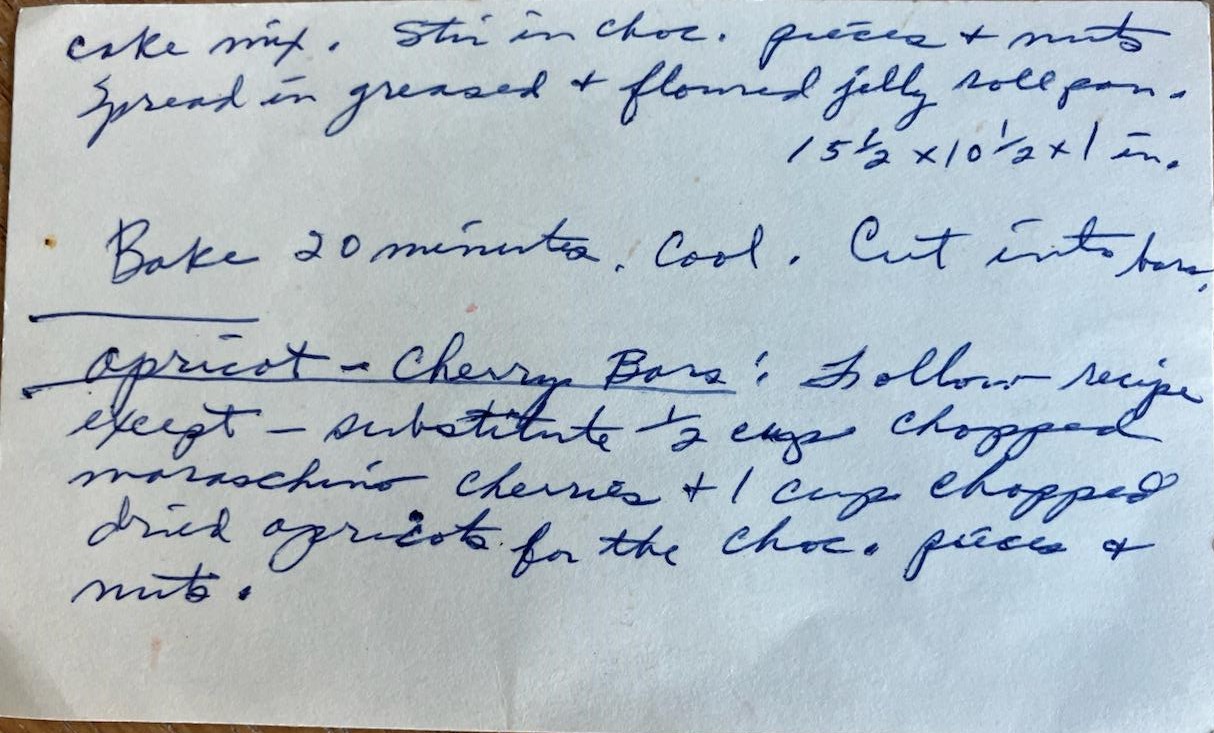 cake mix. Stir in choc. pieces + nuts
Spread in greased + floured jelly roll pan.
15 1/2 x 10 1/2 x 1 in.
Bake 20 minutes. Cool. Cut into bars.
Apricot - Cherry Bars: Follow recipe
except - substitute 1/2 cup chopped
maraschino cherries + 1 cup chopped
dried apricots for the choc. pieces +
nuts.